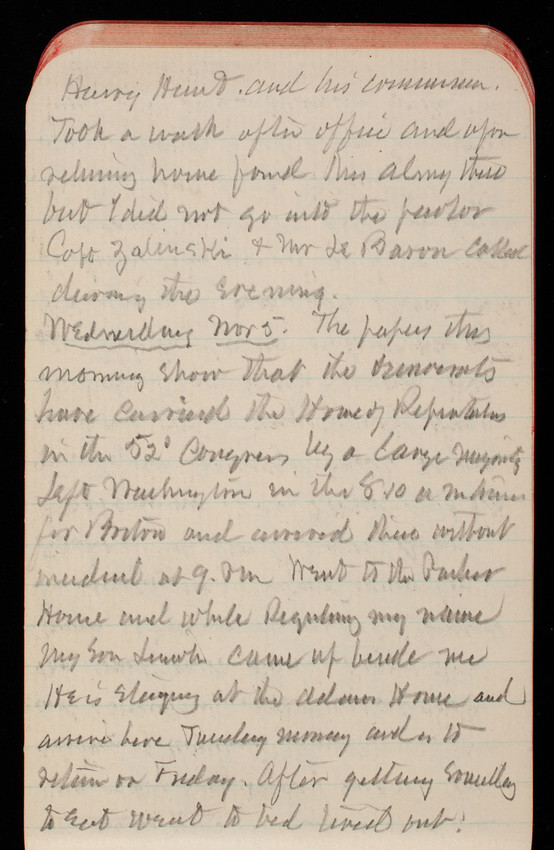 Harry Hunt. and his common
Took a walk after office and upon
returning home found Mrs Almy there
but I did not go into the parlor
Capt Zalinski & Mr Le Baron called
during the Evening.
Wednesday Nov 5. The papers this
morning show that the democrats
have carried the House of Reprtatives
in the 52d Congress by a large majority
Left Washington in the 8.10 a m train
for Boston and arrived there without
incident at 9. Pm Went to the Parker
House and while Registering my name
My Son Lincoln came up beside me
He is Staying at the Adams House and
arrive here Tuesday morning and is to
return on Friday. After getting Something
to Eat went to bed tired out.